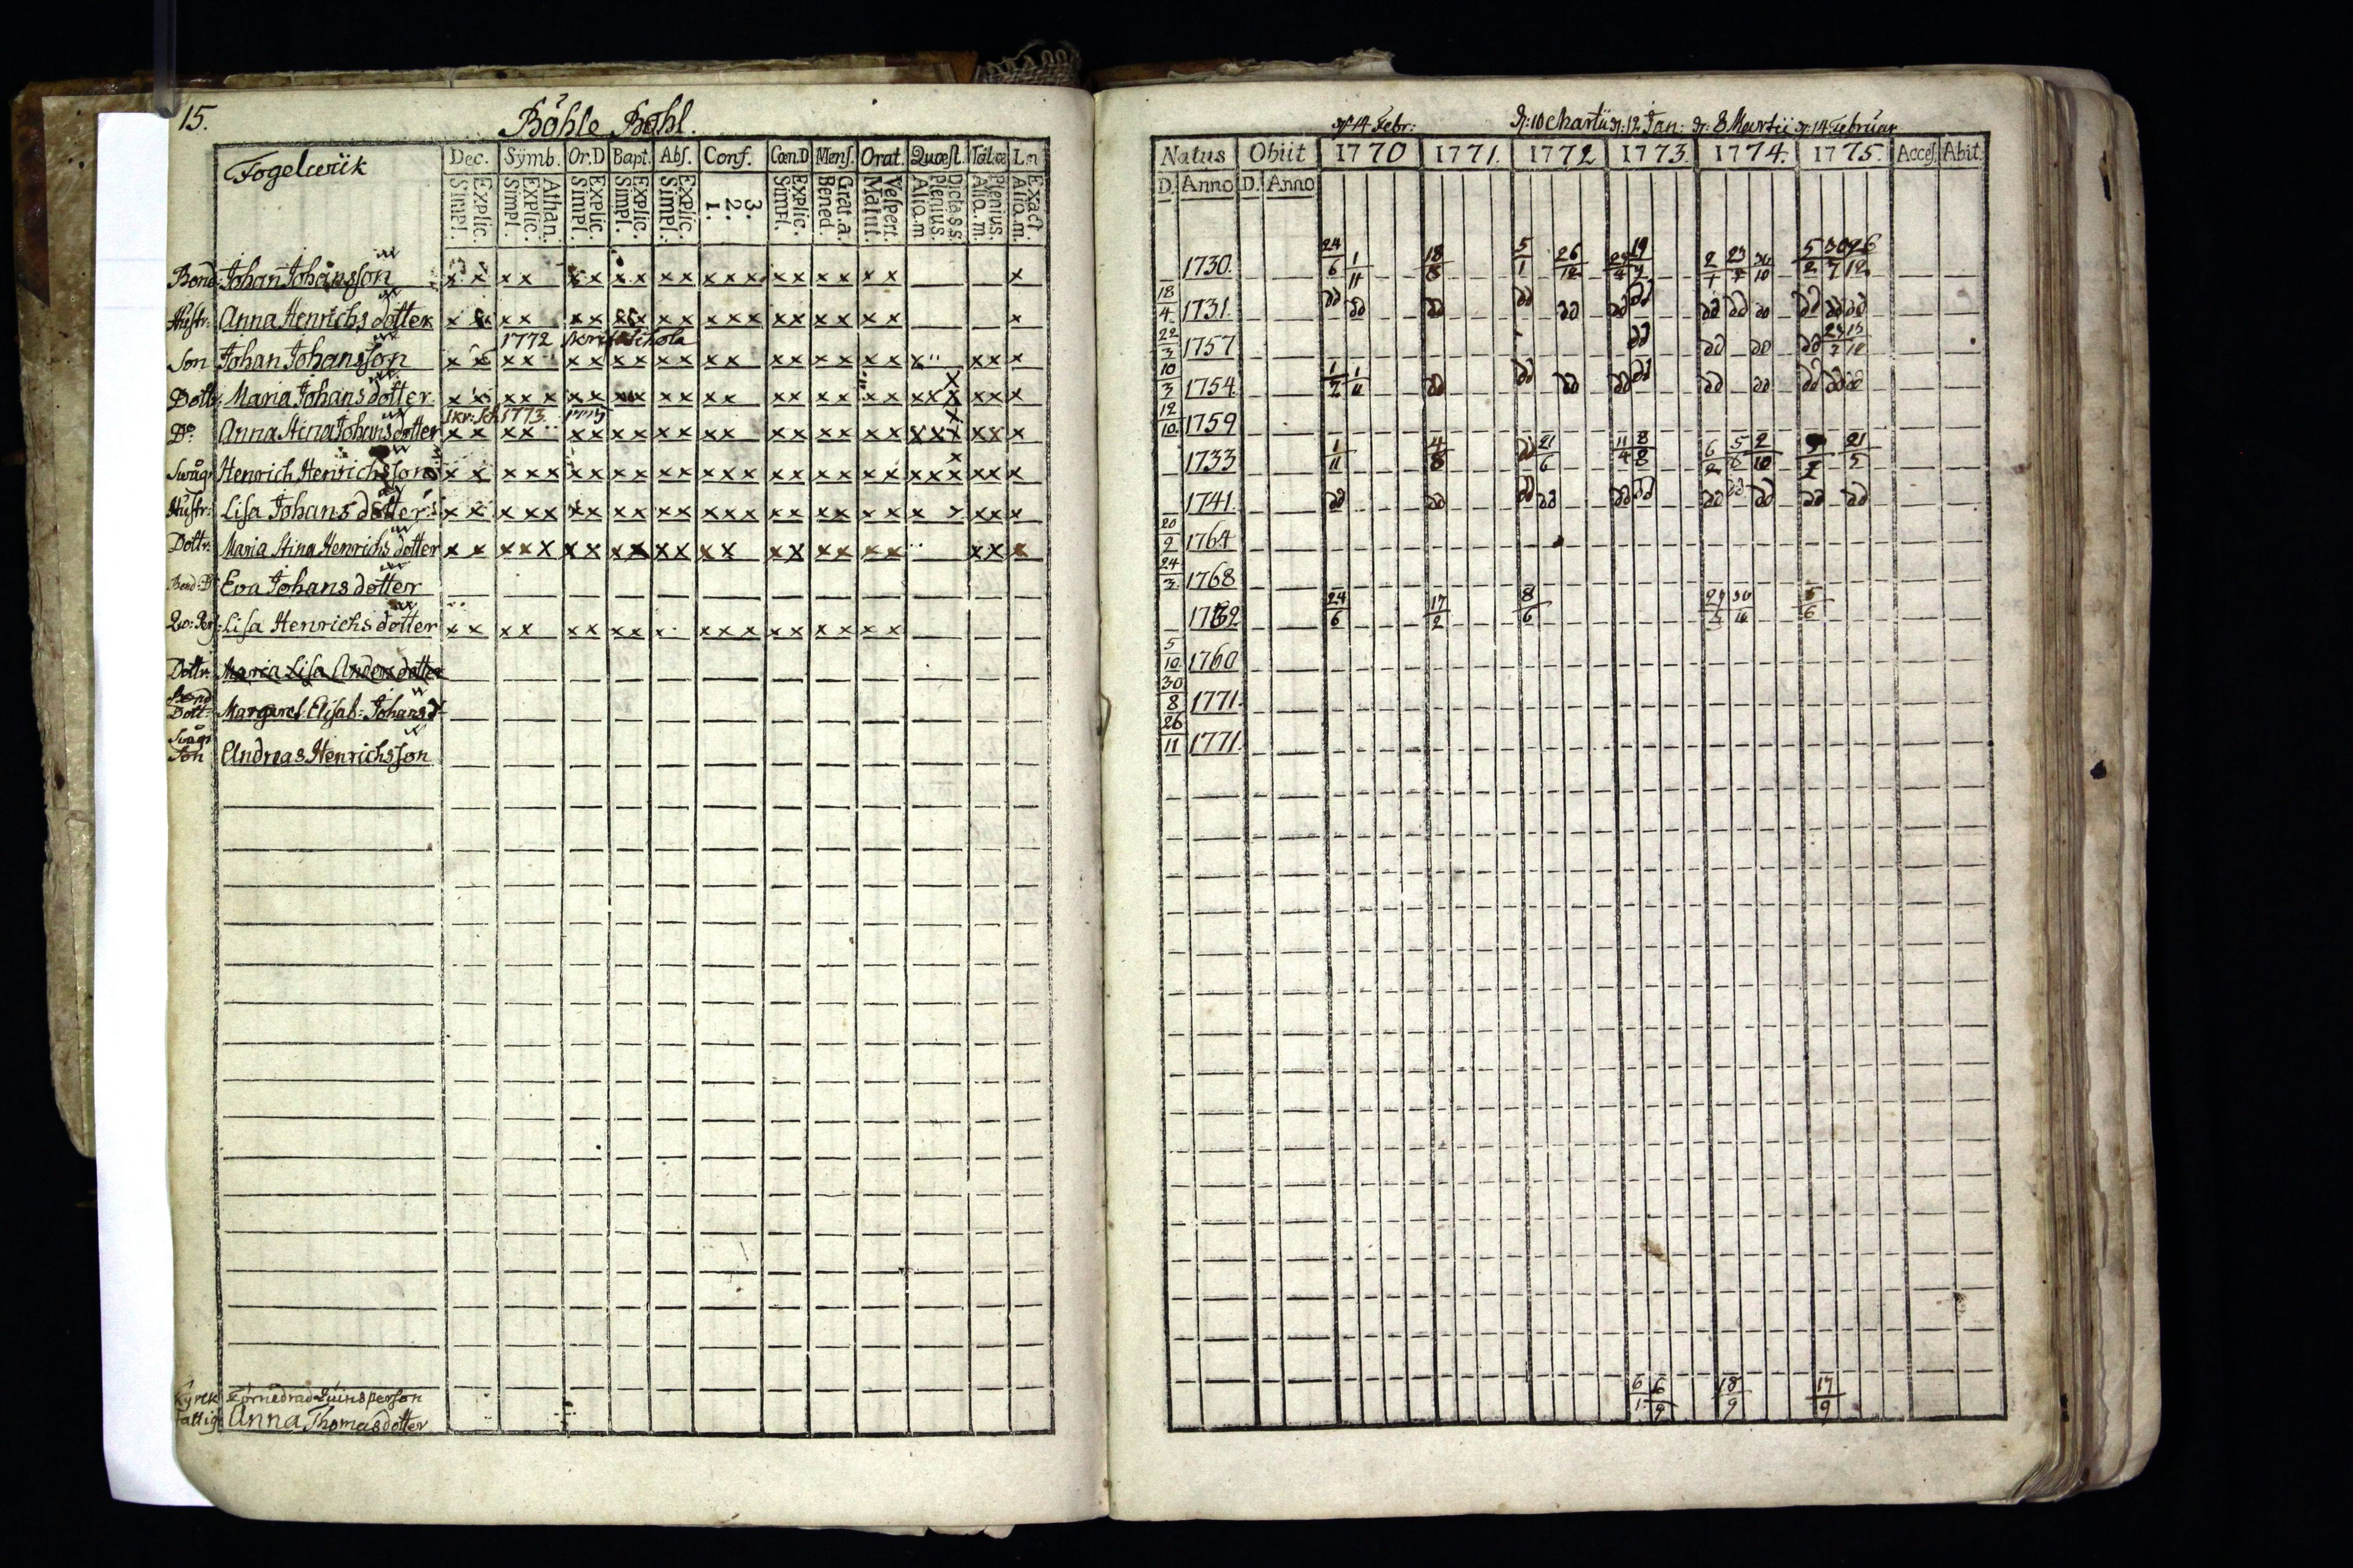 15.
Böhle Bohl.
Fogelwiik
Dec. Symb. Or.D Bapt. Abs. Conf. Cœn.D Mens. Orat. Quæst. Tal.œ L.n
Simpl. Explic. Simpl. Explic. Athan. Simpl. Explic. Simpl. Explic. Simpl. Explic. 1. 2. 3. Simpl. Explic. Bened. Grat. a. Matut. Vespert. Aliq.m Plenius. Dict. a S.S. Aliq.m Plenius. Aliq.m Exact.
Bond: Johan Johansson x x x x x x x x x x x x x x x x x x x
Hustr: Anna Henrichs dotter x x x x x x x x x x x x x x x x x
1772 Schola
Son Johan Johansson x x x x x x x x x x x x x x x x x x x x x x
Dottr: Maria Johans dotter x x x x x x x x x x x x x x x x x x x x x x x x
Skr: Sch. 1773. 1775
Do Anna Stina Johans dotter x x x x x x x x x x x x x x x x x x x x x x x
Swåg: Henrich Henrichsson x x x x x x x x x x x x x x x x x x x x x x x x x
Hustr: Lisa Johans dotter x x x x x x x x x x x x x x x x x x x x x x x
Dottr: Maria Stina Henrichs dotter x x x x x x x x x x x x x x x x x x x x x x
Bond: D: Eva Johans dotter
Lisa Henrichs dotter x x x x x x x x x x x x x x x x x
Dottr: Maria Lisa Anders dotter
Bond Dott: Margaret Elisab: Johans d
Swågr Son Andreas Henrichsson
Kyrck Förnedrad Quinsperson
Fattig Anna Thomasdotter
14 Febr: 10 Martii 12 Jan: 8 Martii 14 Februar
Natus Obiit 1770 1771. 1772 1773. 1774. 1775. Acces. Abit.
D. Anno D. Anno
1730. 24/6 1/11 18/8 5/1 26/12 19
18/4 1731. dd dd dd dd dd dd dd dd dd dd dd dd dd
22/3 1757 dd dd dd dd
10/3 1754. 1/2 1/11 dd dd dd dd dd dd dd dd dd dd
12/10. 1759
1733 1/11 4/8 21/6 11/4 8/8 5/8 2/10 21/5
1741. dd dd dd dd dd dd dd dd dd dd dd
20/9 1764
24/3 1768
24/6 17/2 8/6 5/6
5/10. 1760
30/8 1771.
26/11 1771.
6/9 18/9 17/9